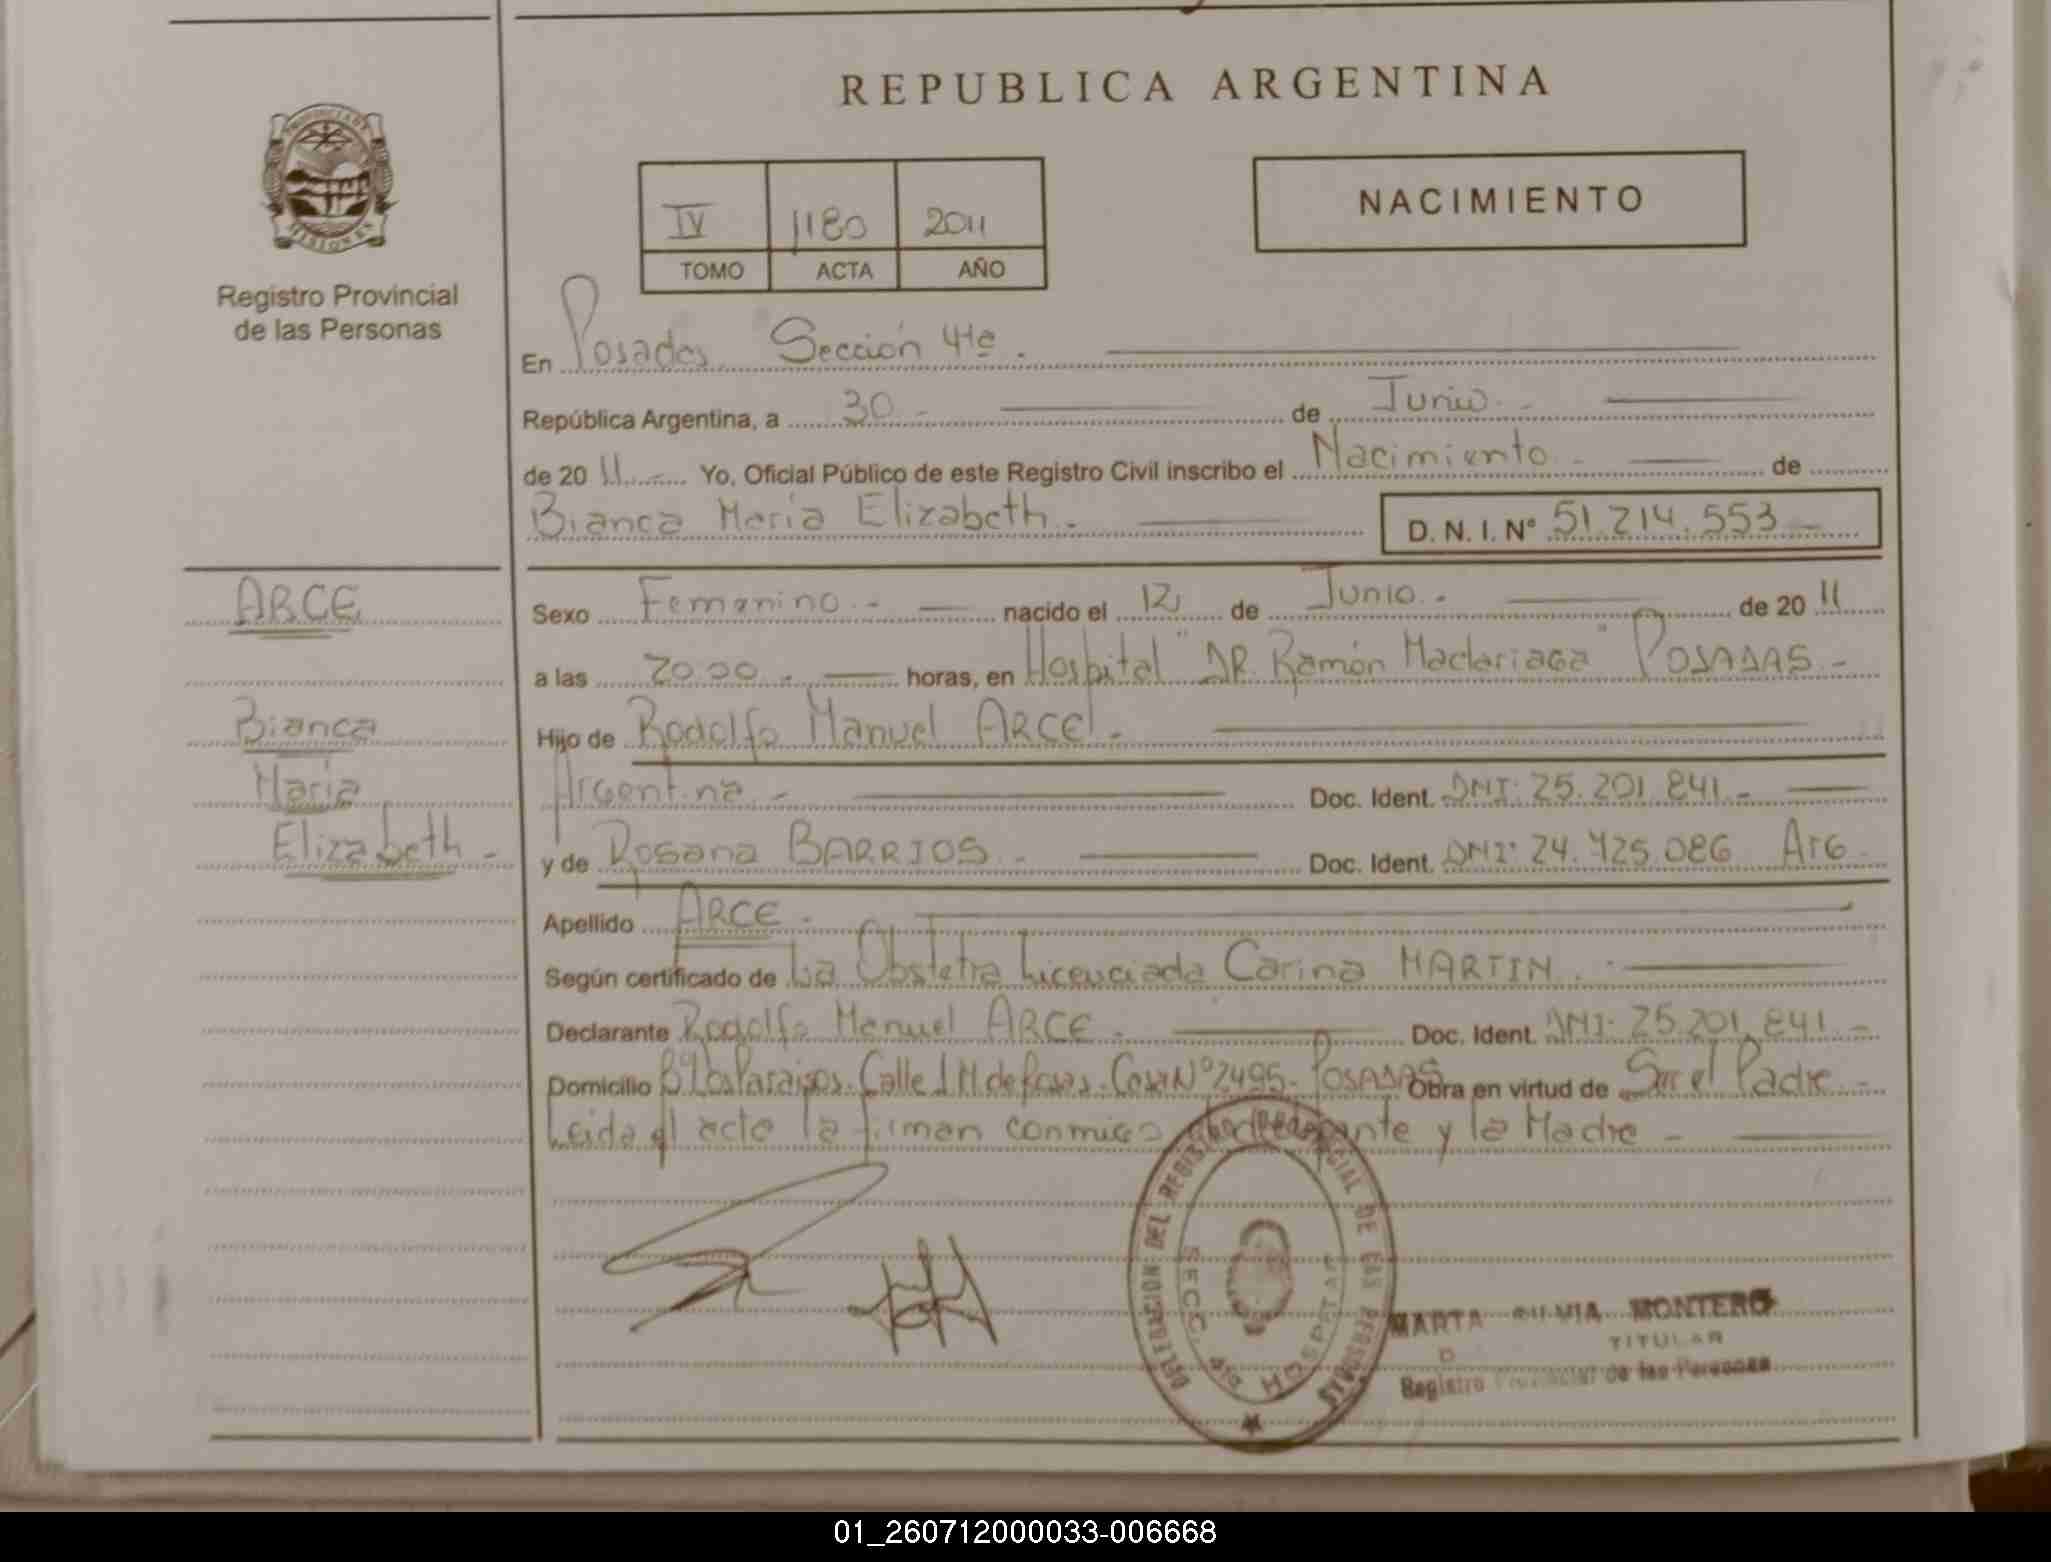 REPUBLICA ARGENTINA
PROVINCIA DE MISIONES
Registro Provincial
de las Personas
IV 1180 2011
TOMO ACTA AÑO
NACIMIENTO
En Posadas Sección 4ta.
República Argentina, a 30 - de Junio -
de 20 11 - Yo, Oficial Público de este Registro Civil inscribo el Nacimiento - de
Bianca María Elizabeth - D. N. I. N° 51.214.553 -
ARCE
Sexo Femenino - nacido el 12 de Junio - de 20 11
a las 20.00 - horas, en Hospital "DR. Ramón Madariaga" POSADAS -
Bianca
Hijo de Rodolfo Manuel ARCE -
María
Argentina - Doc. Ident. DNI: 25.201.841 -
Elizabeth -
y de Rosana BARRIOS - Doc. Ident. DNI: 24.425.086 Arg
Apellido ARCE.
Según certificado de La Obstetra Licenciada Carina MARTIN.
Declarante Rodolfo Manuel ARCE - Doc. Ident. DNI: 25.201.841 -
Domicilio Bº Los Paraisos. Calle J.M de Rosas. Casa Nº 2495 - POSADAS Obra en virtud de Ser el Padre -
Leida el acta la firman conmigo el Declarante y la Madre -
DELEGACION DEL REGISTRO PROVINCIAL DE LAS PERSONAS
SECC. 4ta HOSPITAL
MARTA SILVIA MONTERO
TITULAR
Registro Provincial de las Personas
01_260712000033-006668